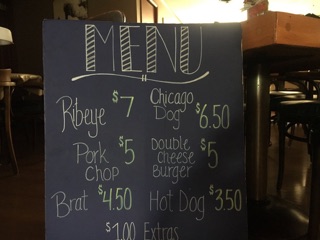 MENU
Ribeye $7
Chicago Dog $6.50
Pork Chop $5
Double Cheese Burger $5
Brat $4.50
Hot Dog $3.50
$1.00 Extras